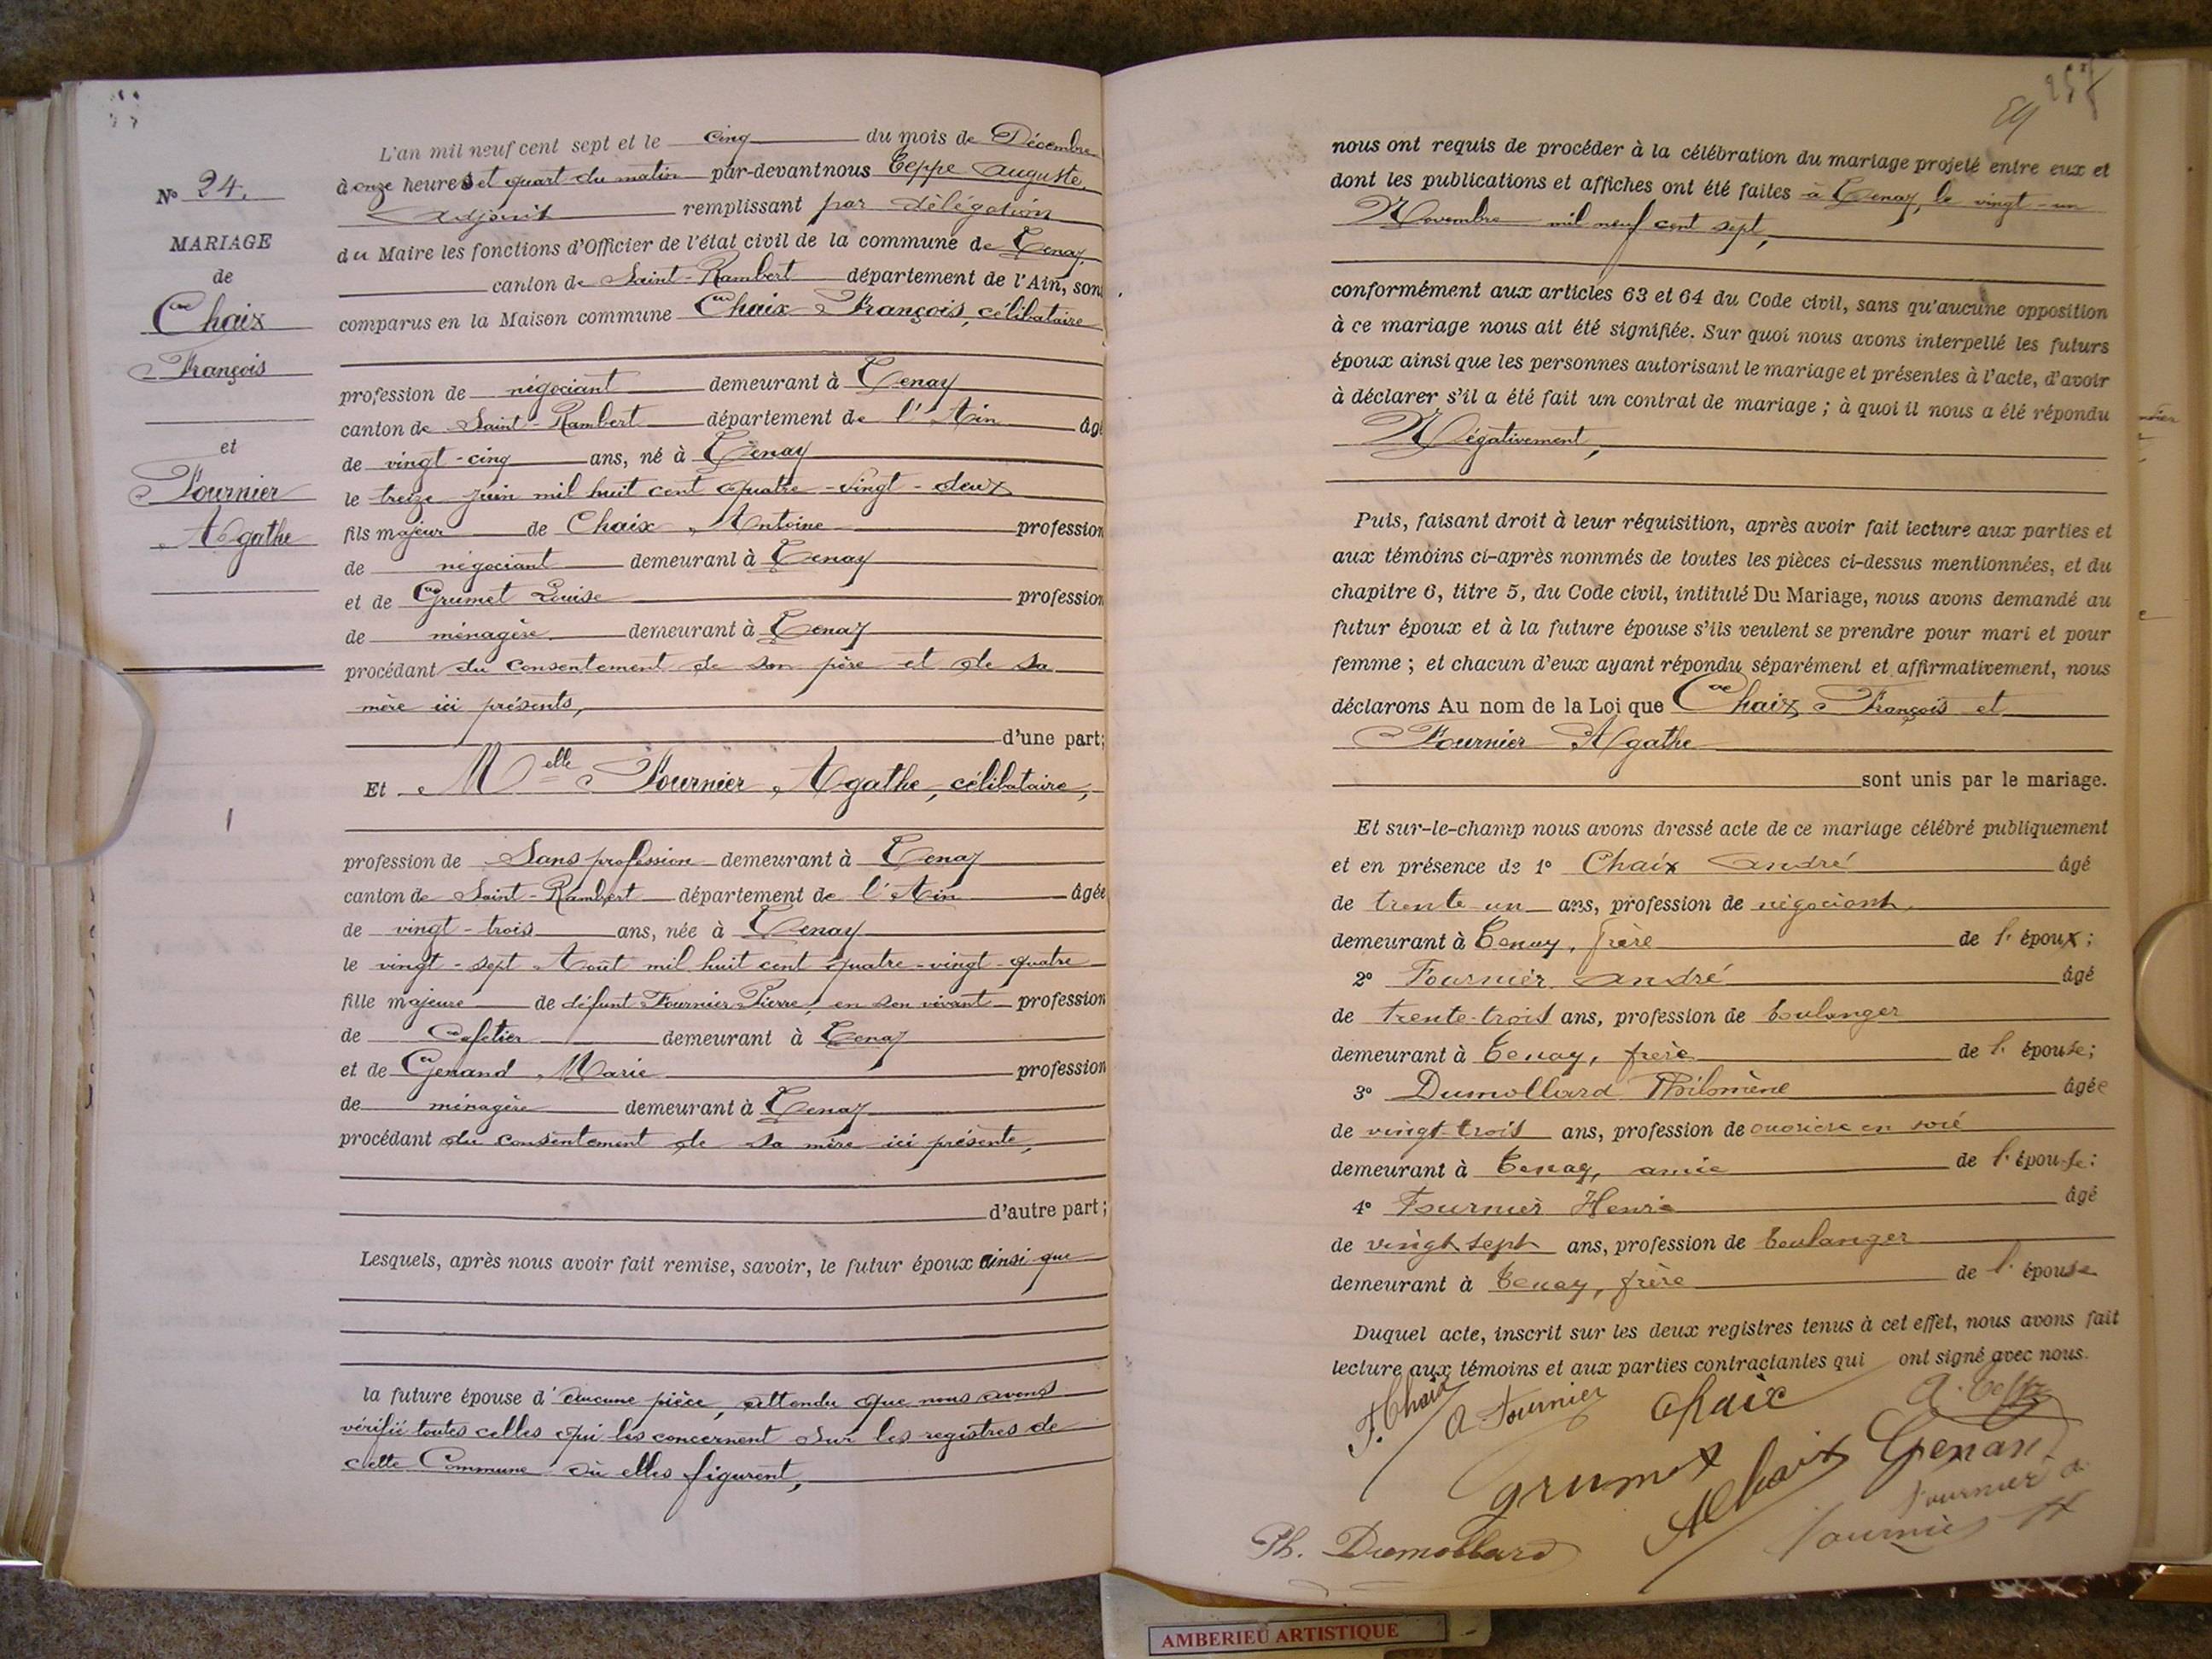 N° 24.
MARIAGE
de
Chaix
François
et
Fournier
Agathe
L'an mil neuf cent sept et le cinq du mois de Décembre
à onze heures et quart du matin par-devant nous Teppe Auguste,
Adjoint remplissant par délégation
du Maire les fonctions d'Officier de l'état civil de la commune de Tenay,
canton de Saint-Rambert département de l'Ain, son
comparus en la Maison commune Chaix François, célibataire
profession de négociant demeurant à Tenay
canton de Saint-Rambert département de l'Ain âgé
de vingt-cinq ans, né à Tenay
le treize Juin mil huit cent quatre-vingt-deux
fils majeur de Chaix Antoine profession
de négociant demeurant à Tenay
et de Grumet Louise profession
de ménagère demeurant à Tenay
procédant du consentement de son père et de sa
mère ici présents,
d'une part;
Et Melle Fournier Agathe, célibataire,
profession de Sans profession demeurant à Tenay
canton de Saint-Rambert département de l'Ain âgée
de vingt-trois ans, née à Tenay
le vingt-sept Août mil huit cent quatre-vingt-quatre
fille majeure de défunt Fournier Pierre, en son vivant profession
de Cafetier demeurant à Tenay
et de Genand Marie profession
de ménagère demeurant à Tenay
procédant du consentement de sa mère ici présente,
d'autre part;
Lesquels, après nous avoir fait remise, savoir, le futur époux ainsi que
la future épouse d'aucune pièce, attendu que nous avons
vérifié toutes celles qui les concernent sur les registres de
cette Commune où elles figurent,
257
nous ont requis de procéder à la célébration du mariage projeté entre eux et
dont les publications et affiches ont été faites à Tenay, le vingt-un
Novembre mil neuf cent sept,
conformément aux articles 63 et 64 du Code civil, sans qu'aucune opposition
à ce mariage nous ait été signifiée. Sur quoi nous avons interpellé les futurs
époux ainsi que les personnes autorisant le mariage et présentes à l'acte, d'avoir
à déclarer s'il a été fait un contrat de mariage ; à quoi il nous a été répondu
Négativement,
Puis, faisant droit à leur réquisition, après avoir fait lecture aux parties et
aux témoins ci-après nommés de toutes les pièces ci-dessus mentionnées, et du
chapitre 6, titre 5, du Code civil, intitulé Du Mariage, nous avons demandé au
futur époux et à la future épouse s'ils veulent se prendre pour mari et pour
femme ; et chacun d'eux ayant répondu séparément et affirmativement, nous
déclarons Au nom de la Loi que Chaix François et
Fournier Agathe
sont unis par le mariage.
Et sur-le-champ nous avons dressé acte de ce mariage célébré publiquement
et en présence de 1° Chaix André âgé
de trente un ans, profession de négociant
demeurant à Tenay, frère de l'époux;
2° Fournier André âgé
de trente-trois ans, profession de boulanger
demeurant à Tenay, frère de l'épouse;
3° Dumollard Philomène âgée
de vingt-trois ans, profession de ouvrière en soie
demeurant à Tenay, amie de l'épouse:
4° Fournier Henri âgé
de vingt sept ans, profession de boulanger
demeurant à Tenay, frère de l'épouse
Duquel acte, inscrit sur les deux registres tenus à cet effet, nous avons fait
lecture aux témoins et aux parties contractantes qui ont signé avec nous.
F. Chaix A Fournier Chaix A. Teppe
Grumet A Chaix Genand
Fournier a
Ph. Dumollard Fournier H
AMBERIEU ARTISTIQUE